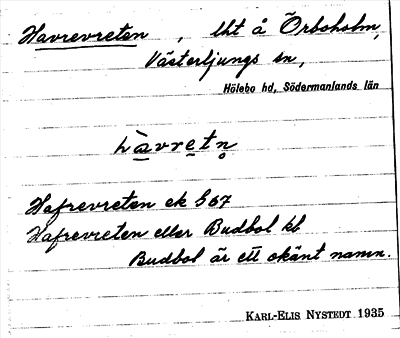 Havrevreten, lht å Örboholm,
Västerljungs sn,
Hölebo hd, Södermanlands län
hàvretn̥
Hafrevreten ek 567
Hafrevreten eller Budbol kb
Budbol är ett okänt namn.
KARL-ELIS NYSTEDT 1935